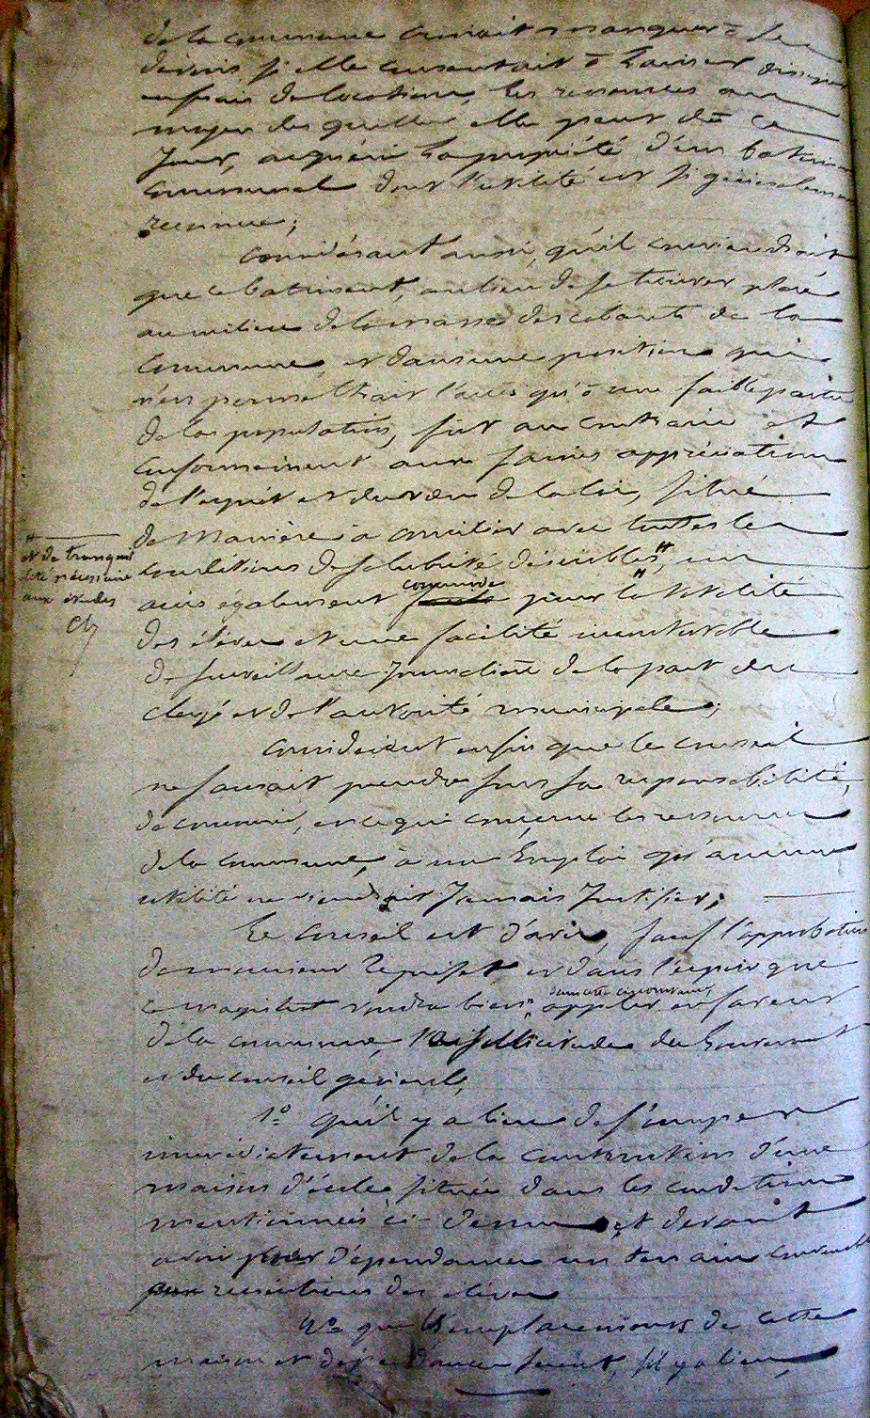 de la commune croirait manquer à ses
devoirs si elle consentait à laisser dissiper
en frais de location, les ressources au
moyen desquelles elle peut dès ce
jour, acquérir la propriété d'un batiment
communal dont l'utilité est si généralement
reconnue;
Considérant aussi, qu'il conviendrait
que ce batiment, au lieu de se trouver placé
au milieu de la masse des cabarets de la
commune, et dans une position qui
n'en permettrait l'accès qu'à une faible partie
de la population, fut au contraire et
conformément aux saines appréciations
de l'esprit et du vœu de la loi, situé
de manière à concilier avec toutes les
conditions de salubrité désirables #, un
# et de tranquillité nécessaire
aux études
accès également commode pour la totalité
des élèves et une facilité incontestable
de surveillance journalière de la part du
clergé et de l'autorité municipale;
Considérant enfin que le conseil
ne saurait prendre sous sa responsabilité,
de concourir, en ce qui concerne les ressources
de la commune, à un emploi qu'aucune
utilité ne viendrait jamais justifier;
Le Conseil est d'avis, sauf l'approbation
de monsieur le préfet et dans l'espoir que
ce magistrat voudra bien, dans cette circonstance, appeler en faveur
de la commune, la sollicitude du Gouvernement
et du conseil général,
1° qu'il y a lieu de s'occuper
immédiatement de la construction d'une
maison d'école située dans les conditions
mentionnées ci-dessus et devant
avoir pour dépendances un terrain convenable
aux récréations des élèves
2° que l'emplacement de cette
maison et dépendances seront, s'il y a lieu,